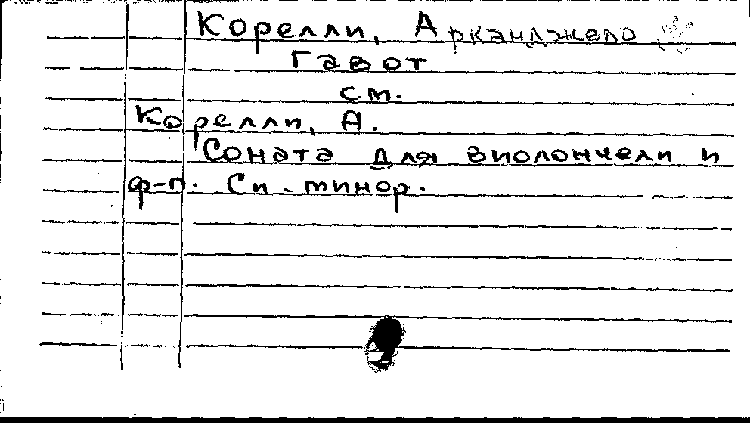 Корелли, Арканджело
Гавот
см.
Корелли, А.
Соната для виолончели и
ф-п. Си минор.